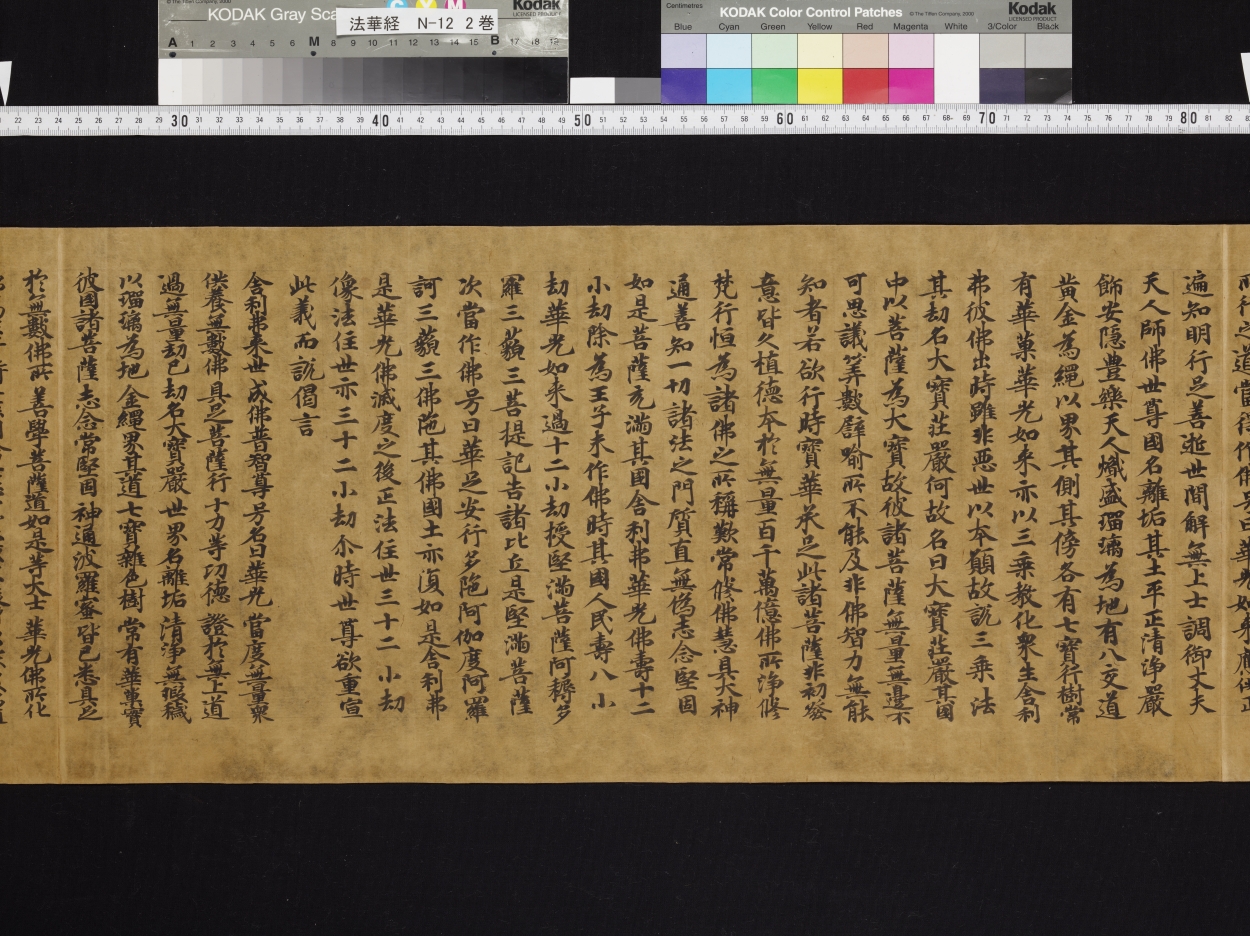 KODAK Gray Sca
法華経 N-12 2巻
Kodak
LICENSED PRODUCT
C Y M
© The Tiffen Company, 2000
A 1 2 3 4 5 6 M 8 9 10 11 12 13 14 15 B 17 18 19
Centimetres
KODAK Color Control Patches
© The Tiffen Company, 2000
Kodak
LICENSED PRODUCT
Blue Cyan Green Yellow Red Magenta White 3/Color Black
22 23 24 25 26 27 28 29 30 31 32 33 34 35 36 37 38 39 40 41 42 43 44 45 46 47 48 49 50 51 52 53 54 55 56 57 58 59 60 61 62 63 64 65 66 67 68 69 70 71 72 73 74 75 76 77 78 79 80 81 82
遍知明行足善逝世間解無上士調御丈夫
天人師佛世尊國名離垢其土平正清浄嚴
飾安隠豊樂天人熾盛瑠璃為地有八交道
黄金為繩以界其側其傍各有七寶行樹常
有華菓華光如来亦以三乗教化衆生舎利
弗彼佛出時雖非悪世以本願故説三乗法
其劫名大寶荘嚴何故名曰大寶荘嚴其國
中以菩薩為大寶故彼諸菩薩無量無邊不
可思議筭數譬喻所不能及非佛智力無能
知者若欲行時寶華承足此諸菩薩非初發
意皆久植德本於無量百千萬億佛所浄修
梵行恒為諸佛之所稱歎常修佛慧具大神
通善知一切諸法之門質直無偽志念堅固
如是菩薩充滿其國舎利弗華光佛壽十二
小劫除為王子未作佛時其國人民壽八小
劫華光如来過十二小劫授堅滿菩薩阿耨多
羅三藐三菩提記告諸比丘是堅滿菩薩
次當作佛号曰華足安行多陁阿伽度阿羅
訶三藐三佛陁其佛國土亦復如是舎利弗
是華光佛滅度之後正法住世三十二小劫
像法住世亦三十二小劫尒時世尊欲重宣
此義而説偈言
舎利弗来世 成佛普智尊 号名曰華光 當度無量衆
供養無數佛 具足菩薩行 十力等功德 證於無上道
過無量劫已 劫名大寶嚴 世界名離垢 清浄無瑕穢
以瑠璃為地 金繩界其道 七寶雜色樹 常有華菓實
彼國諸菩薩 志念常堅固 神通波羅蜜 皆已悉具足
於無數佛所 善學菩薩道 如是等大士 華光佛所化